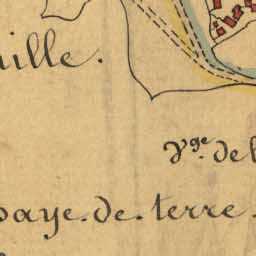 ille.
Vge. del
paye.de.terre.